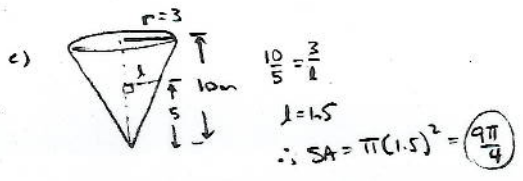 r=3
c)
l
10m
5
10/5 = 3/l
l=1.5
∴ SA = π(1.5)² = 9π/4